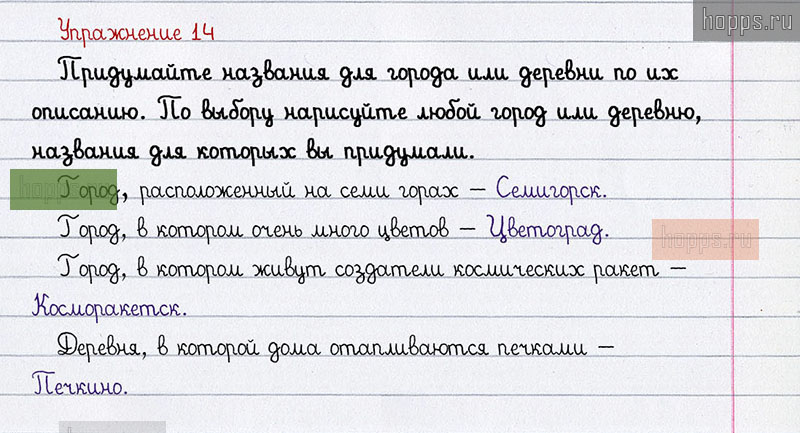 hopps.ru
Упражнение 14
Придумайте названия для города или деревни по их
описанию. По выбору нарисуйте любой город или деревню,
названия для которых вы придумали.
Город, расположенный на семи горах – Семигорск.
Город, в котором очень много цветов – Цветоград.
hopps.ru
Город, в котором живут создатели космических ракет –
Косморакетск.
Деревня, в которой дома отапливаются печками –
Печкино.